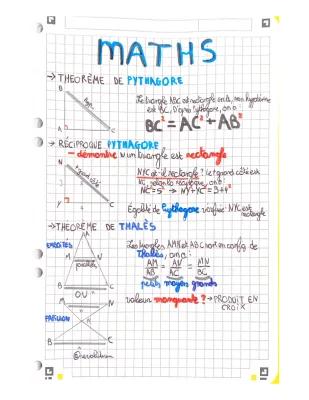 MATHS
→ THEORÈME DE PYTHAGORE
B
hyp.
A
C
Le triangle ABC est rectangle en A, son hypoténuse
est BC, D'après Pythagore, on a :
BC² = AC² + AB²
→ RÉCIPROQUE PYTHAGORE
– démontre si un triangle est rectangle
N
+ grand côté
Y
C
NYC est-il rectangle ? Le + grand côté est
NC, selon la réciproque, on a :
Égalité de Pythagore vérifiée NYC est
rectangle
→ THEOREME DE THALÈS
EMBOITÉS
A
M
N
parallèles
B
C
OU
M
N
PAPILLON
A
B
C
Les triangles AMN et ABC sont en config de
Thalès, on a :
AM = AN = MN
AB AC BC
petits moyens grands
valeur manquante ? → PRODUIT EN
CROIX